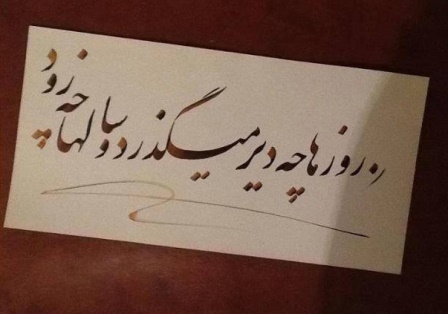 روزها چه دیر میگذرد و سالها چه زود